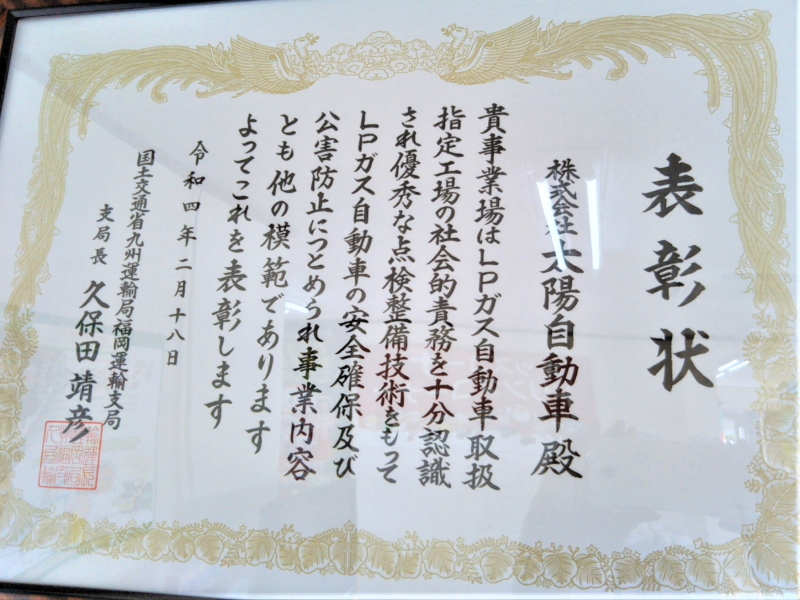 表彰状
株式会社 太陽自動車 殿
貴事業場はLPガス自動車取扱
指定工場の社会的責務を十分認識
され優秀な点検整備技術をもって
LPガス自動車の安全確保及び
公害防止につとめられ事業内容
とも他の模範であります
よってこれを表彰します
令和四年二月十八日
国土交通省九州運輸局福岡運輸支局
支局長 久保田靖彦